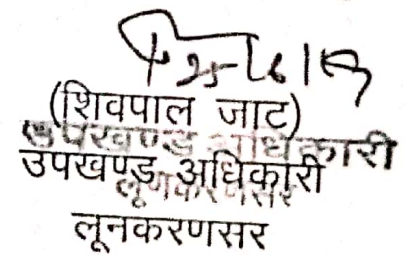 25/6/19
(शिवपाल जाट)
उपखण्ड अधिकारी
उपखण्ड अधिकारी
लूणकरणसर
लूनकरणसर